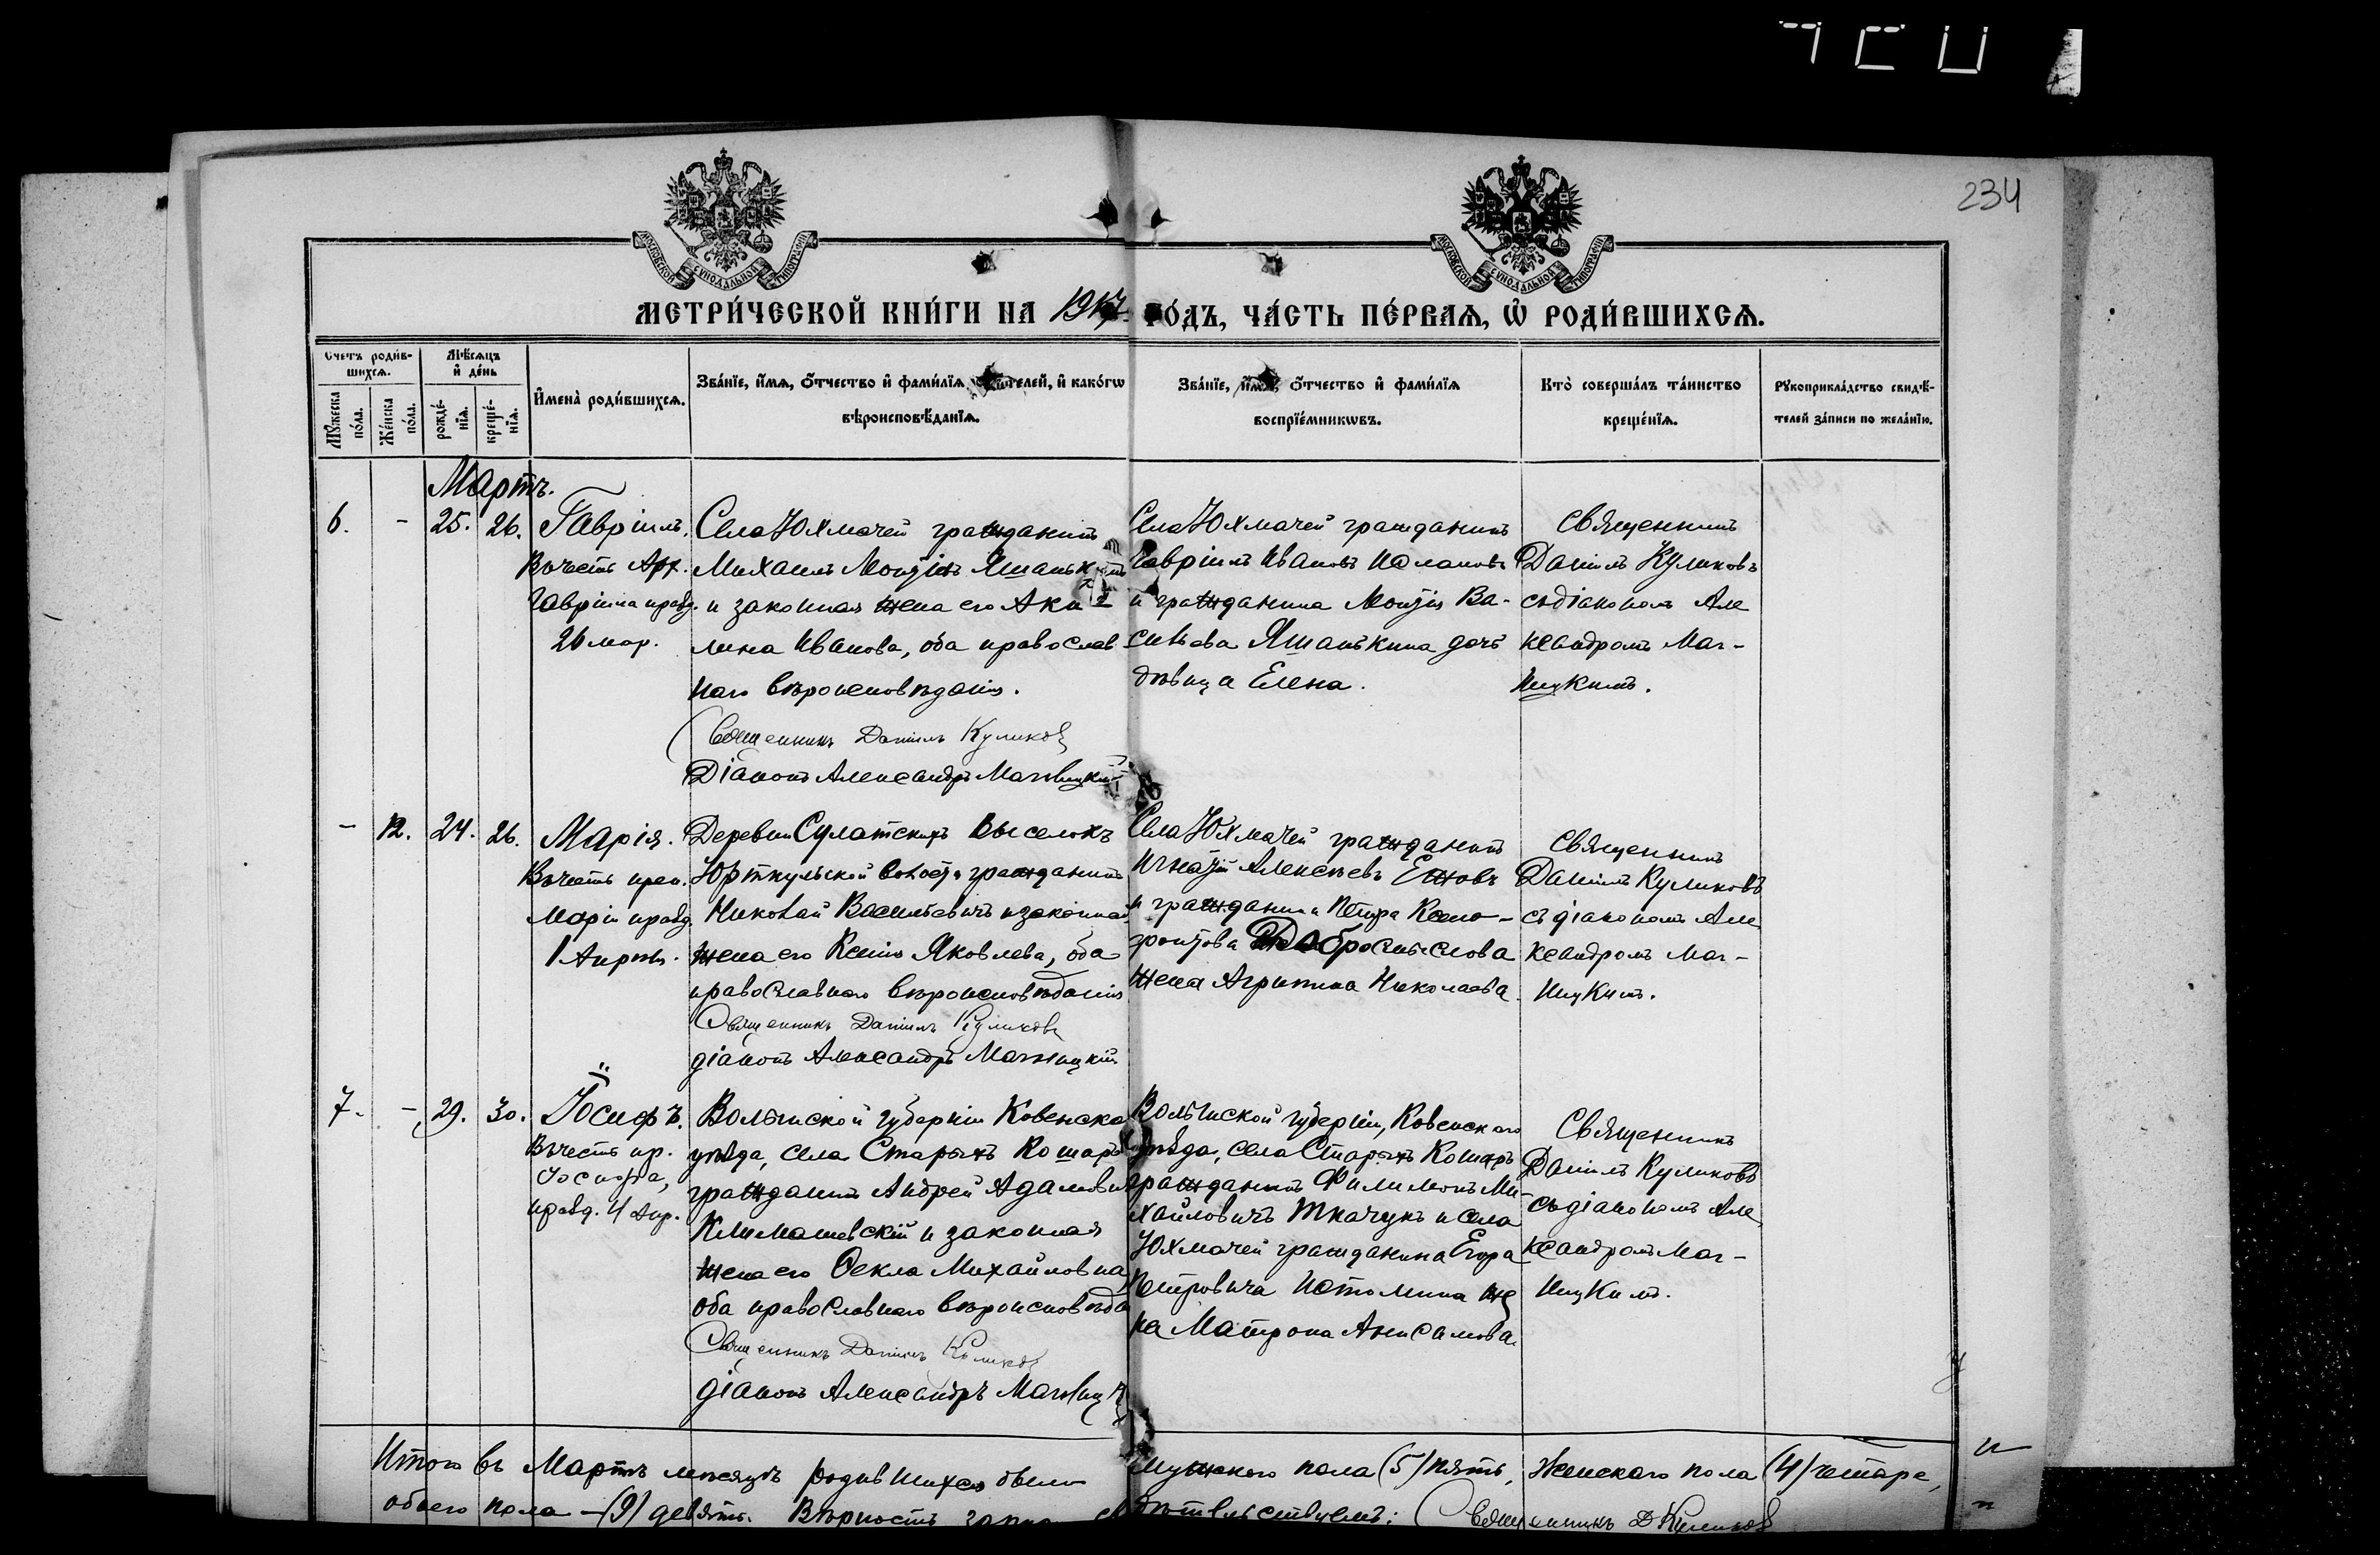 234
МОСКОВСКОЙ СѴНОДАЛЬНОЙ ТИПОГРАФІИ
МОСКОВСКОЙ СѴНОДАЛЬНОЙ ТИПОГРАФІИ
МЕТРИ́ЧЕСКОЙ КНИ́ГИ НА 1917 ГО́ДЪ, ЧА́СТЬ ПЕ́РВАѦ, Ѡ҆ РОДИ́ВШИХСѦ.
Счетъ роди́в-
шихсѧ.
Мꙋ́жеска по́ла.
Же́нска по́ла.
Мѣ́сѧцъ
и҆ де́нь
рожде́-
нїѧ.
креще́-
нїѧ.
И҆мена̀ роди́вшихсѧ.
Зва́нїе, и҆́мѧ, ѻ҆́тчество и҆ фами́лїѧ родителей, и҆ како́гѡ
вѣроисповѣ́данїѧ.
Зва́нїе, и҆́мѧ, ѻ҆́тчество и҆ фами́лїѧ
воспрїе́мникѡвъ.
Кто̀ соверша́лъ та́инство
креще́нїѧ.
Рꙋкоприкла́дство свидѣ́-
телей за́писи по жела́нїю.
Мартъ.
6. - 25. 26.
Гавріилъ.
Въ честь Арх.
Гавріила празд.
26 мар.
Села Юхмачей гражданинъ
Михаилъ Моѵсіевъ
и законная жена его Аки-
лина Иванова, оба православ
наго вѣроисповѣданія.
Священникъ Даніилъ Куликовъ
Діаконъ Александръ Магницкій
Села Юхмачей гражданинъ
Гавріилъ Ивановъ
и гражданина Моѵсія Ва-
сильева Яшанькина дочь
дѣвица Елена.
Священникъ
Даніилъ Куликовъ
съ діакономъ Але
ксандромъ Маг-
ницкимъ.
- 12. 24. 26.
Марія.
Въ честь преп.
Маріи празд.
1 Апрѣля.
Деревни Сулатскихъ Выселокъ
Юрткульской волости гражданинъ
Николай Васильевичъ и законная
жена его Ксенія Яковлева, оба
православнаго вѣроисповѣданія
Священникъ Даніилъ Куликовъ
діаконъ Александръ Магницкій
Села Юхмачей гражданинъ
Игнатій Алексѣевъ
и гражданина Петра Ксено-
фонтова Добросмыслова
жена Агрипина Николаева.
Священникъ
Даніилъ Куликовъ
съ діакономъ Але
ксандромъ Маг-
ницкимъ.
7. - 29. 30.
Іосифъ.
Въ честь пр.
Іосифа,
празд. 4 Апр.
Волынской губерніи Ковенска
уѣзда, села Старыхъ Кошаръ
гражданинъ Андрей Адамовичъ
Климашевскій и законная
жена его Ѳекла Михайловна
оба православнаго вѣроисповѣда
Священникъ Даніилъ Куликовъ
діаконъ Александръ Магницкій
Волынской губерніи, Ковенскаго
уѣзда, села Старыхъ Кошаръ
гражданинъ Филимонъ Ми-
хайловичъ Ткачукъ и села
Юхмачей гражданина Егора
Петровича Истомина же
на Матрона Анисимова.
Священникъ
Даніилъ Куликовъ
съ діакономъ Але
ксандромъ Маг-
ницкимъ.
Итого въ Мартѣ мѣсяцѣ родившихся было мужского пола (5) пять, Женскаго пола (4) четыре,
обоего пола - (9) девять. Вѣрность свидѣтельствуемъ: Священникъ Д Куликовъ